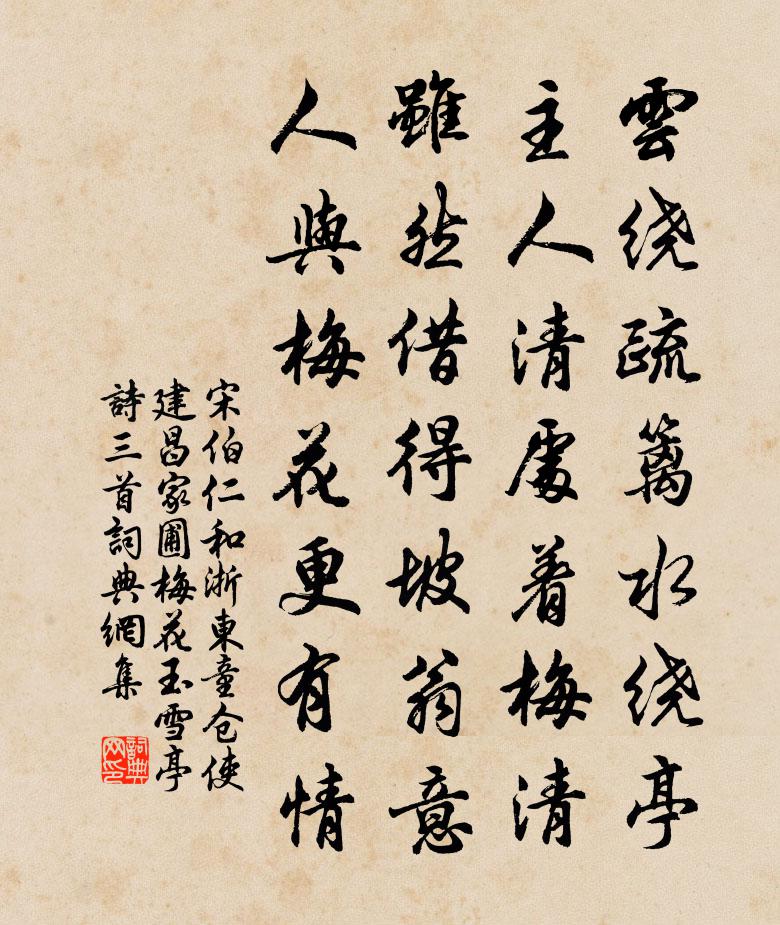 雲绕疏篱水绕亭
主人清處着梅清
雖然借得坡翁意
人與梅花更有情
宋伯仁和浙東童仓使
建昌家圃梅花玉雪亭
詩三首詞典網集
詞典网印